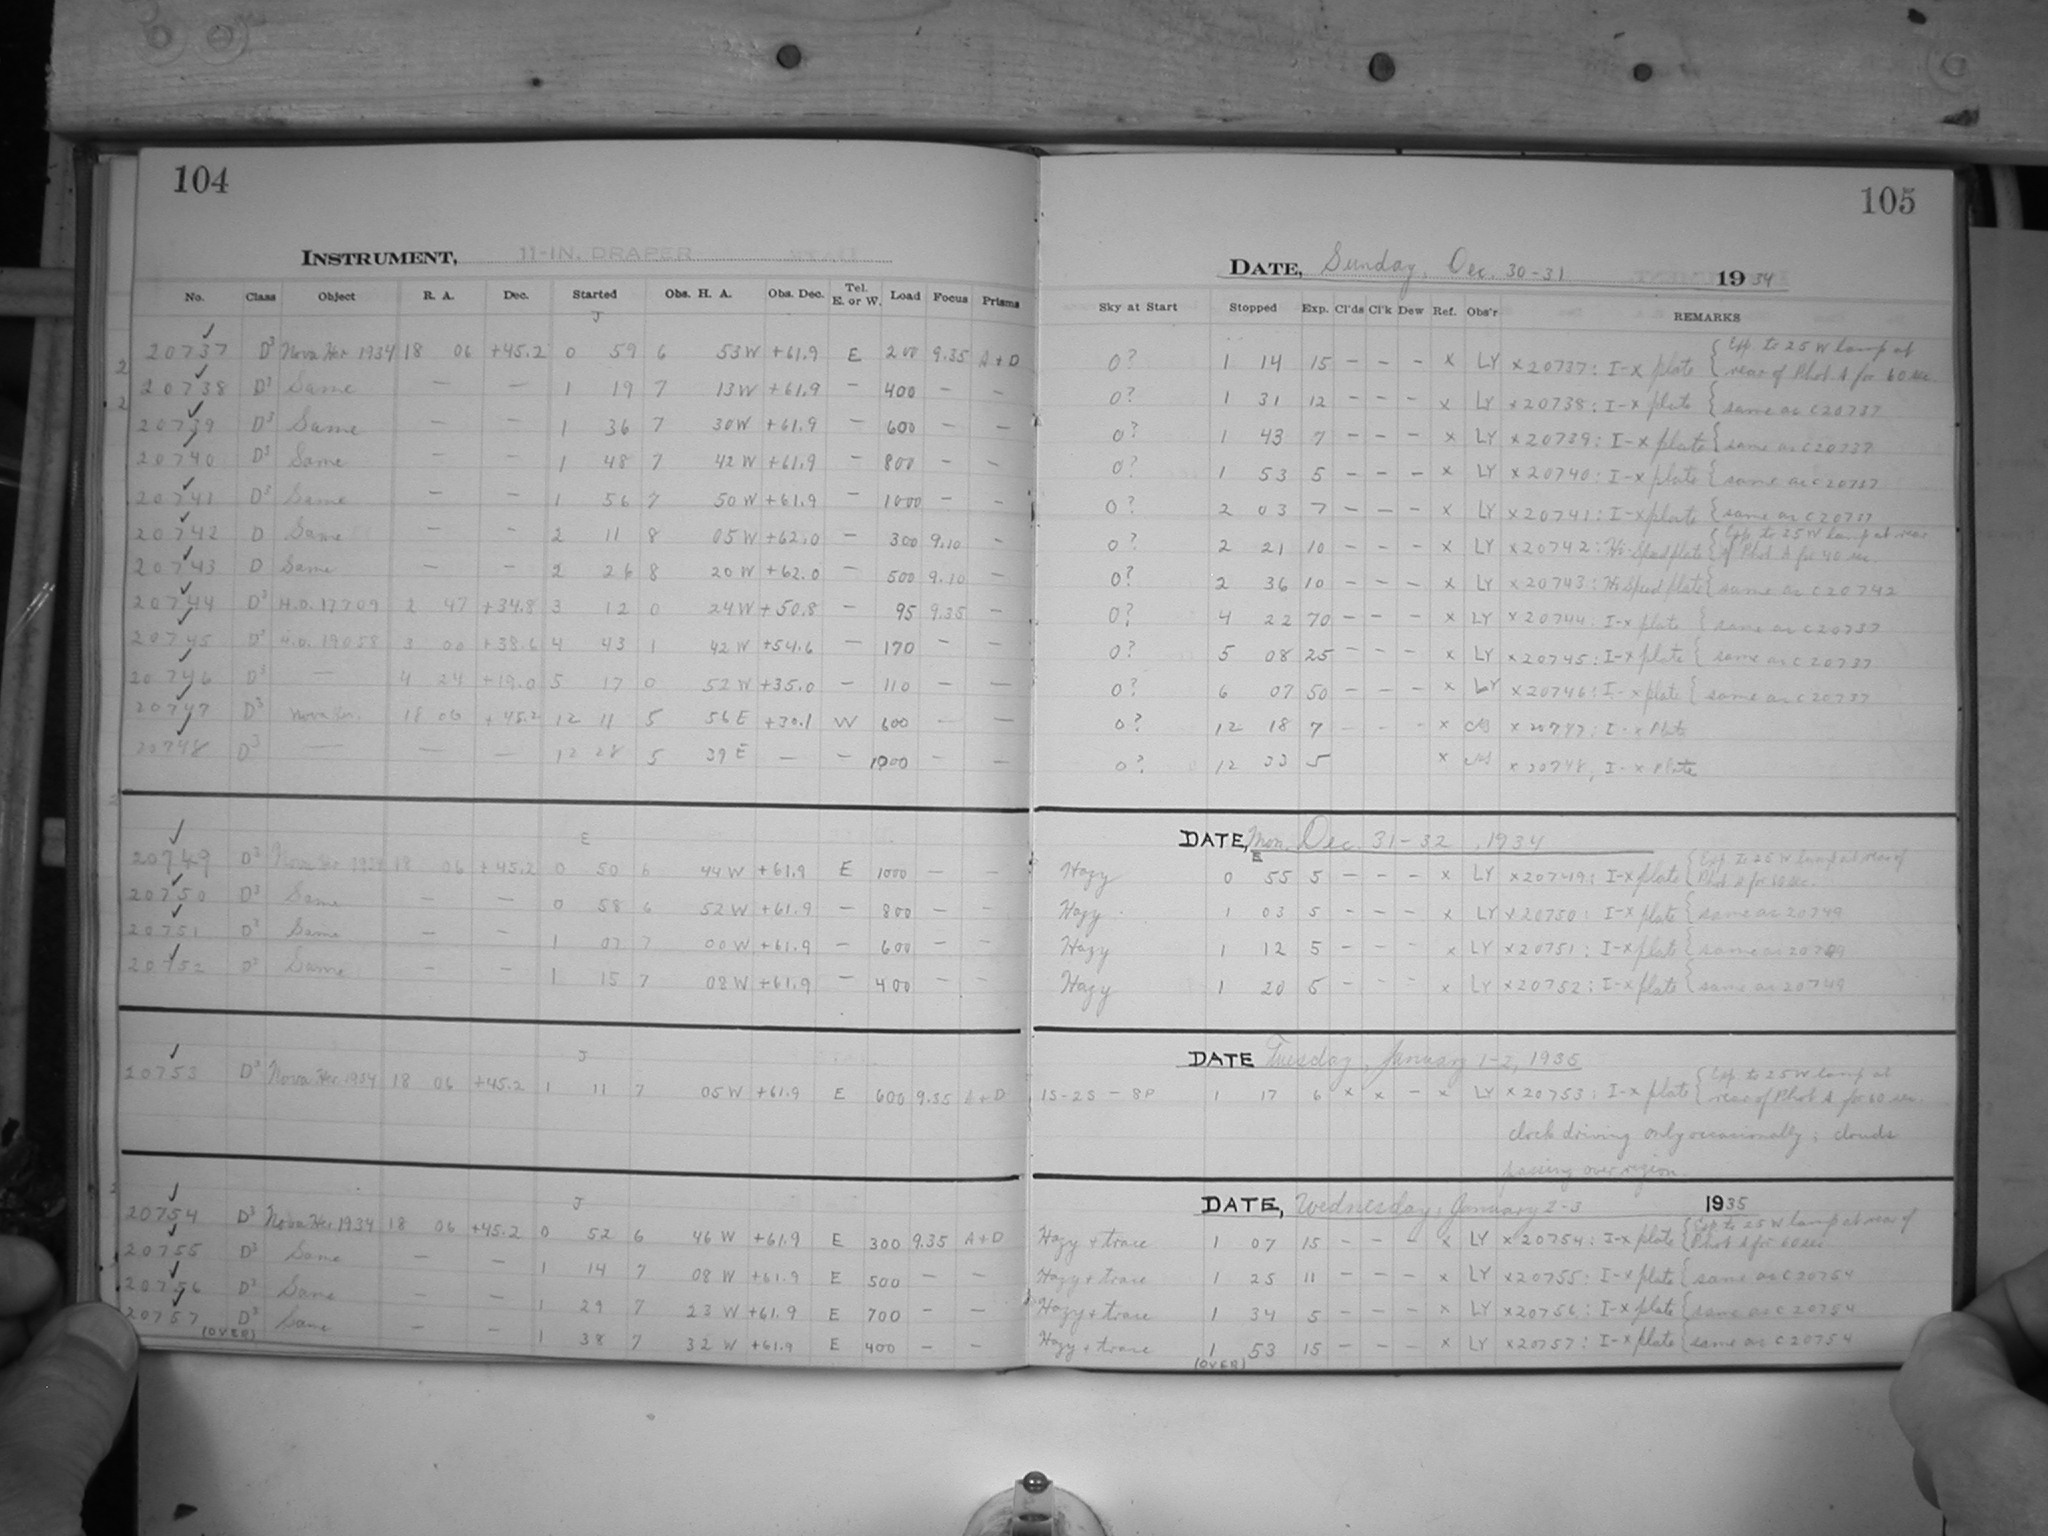 104
INSTRUMENT, 11-IN. DRAPER
No. Class Object R. A. Dec. Started Obs. H. A. Obs. Dec. Tel. E. or W. Load Focus Prisms
J
20737 D³ Nova Her 1934 18 06 +45.2 0 59 6 53W +61.9 E 200 9.35 A+D
20738 D³ Same — — 1 19 7 13W +61.9 — 400 — —
20739 D³ Same — — 1 36 7 30W +61.9 — 600 — —
20740 D³ Same — — 1 48 7 42W +61.9 — 800 — —
20741 D³ Same — — 1 56 7 50W +61.9 — 1000 — —
20742 D Same — — 2 11 8 05W +62.0 — 300 9.10 —
20743 D Same — — 2 26 8 20W +62.0 — 500 9.10 —
20744 D³ H.D. 17709 2 47 +34.8 3 12 0 24W +50.8 — 95 9.35 —
20745 D³ H.D. 19058 3 00 +38.6 4 43 1 42W +54.6 — 170 — —
20746 D³ — 4 24 +19.0 5 17 0 52W +35.0 — 110 — —
20747 D³ Nova Her. 18 06 +45.2 12 11 5 56E +30.1 W 600 — —
20748 D³ — — — 12 28 5 39E — — 1000 — —
E
20749 D³ Nova Her 1934 18 06 +45.2 0 50 6 44W +61.9 E 1000 — —
20750 D³ Same — — 0 58 6 52W +61.9 — 800 — —
20751 D³ Same — — 1 07 7 00W +61.9 — 600 — —
20752 D³ Same — — 1 15 7 08W +61.9 — 400 — —
J
20753 D³ Nova Her 1934 18 06 +45.2 1 11 7 05W +61.9 E 600 9.35 A+D
J
20754 D³ Nova Her 1934 18 06 +45.2 0 52 6 46W +61.9 E 300 9.35 A+D
20755 D³ Same — — 1 14 7 08W +61.9 E 500 — —
20756 D³ Same — — 1 29 7 23W +61.9 E 700 — —
20757 D³ Same — — 1 38 7 32W +61.9 E 400 — —
(OVER)
105
DATE, Sunday, Dec. 30-31 1934
Sky at Start Stopped Exp. Cl'ds Cl'k Dew Ref. Obs'r REMARKS
0? 1 14 15 — — — x LY x20737: I-x plate { Exp. to 25W lamp at rear of Phot A for 60 sec.
0? 1 31 12 — — — x LY x20738: I-x plate { same as C20737
0? 1 43 7 — — — x LY x20739: I-x plate { same as C20737
0? 1 53 5 — — — x LY x20740: I-x plate { same as C20737
0? 2 03 7 — — — x LY x20741: I-x plate { same as C20737
0? 2 21 10 — — — x LY x20742: Hi-Speed plate { Exp. to 25W lamp at rear of Phot A for 40 sec.
0? 2 36 10 — — — x LY x20743: Hi Speed plate { same as C20742
0? 4 22 70 — — — x LY x20744: I-x plate { same as C20737
0? 5 08 25 — — — x LY x20745: I-x plate { same as C20737
0? 6 07 50 — — — x LY x20746: I-x plate { same as C20737
0? 12 18 7 — — — x x20747: I-x Plate
0? 12 33 5 x x20748, I-x Plate
DATE, Mon. Dec. 31-32, 1934
E
Hazy 0 55 5 — — — x LY x20749: I-x plate { Exp. to 25W lamp at rear of Phot A for 60 sec.
Hazy 1 03 5 — — — x LY x20750: I-x plate { same as 20749
Hazy 1 12 5 — — — x LY x20751: I-x plate { same as 20749
Hazy 1 20 5 — — — x LY x20752: I-x plate { same as 20749
DATE Tuesday, January 1-2, 1935
1S-2S — 8P 1 17 6 x x — x LY x20753: I-x plate { Exp. to 25W lamp at rear of Phot A for 60 sec.
clock driving only occasionally; clouds
passing over region.
DATE, Wednesday, January 2-3 1935
Hazy + trace 1 07 15 — — — x LY x20754: I-x plate { Exp. to 25W lamp at rear of Phot A for 60 sec
Hazy + trace 1 25 11 — — — x LY x20755: I-x plate { same as C20754
Hazy + trace 1 34 5 — — — x LY x20756: I-x plate { same as C20754
Hazy + trace 1 53 15 — — — x LY x20757: I-x plate { same as C20754
(OVER)